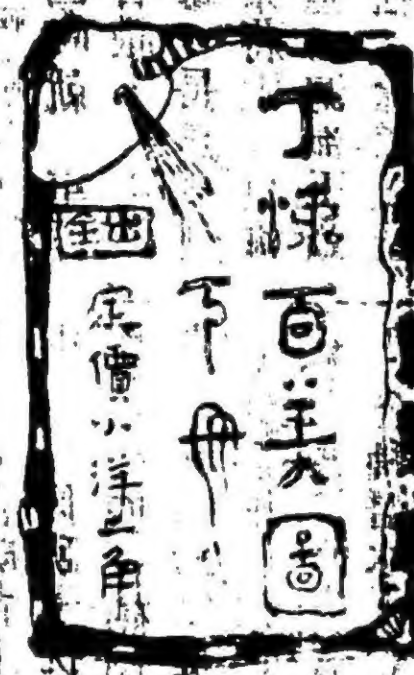 丁悚百美圖
下冊
出全
定價小洋角